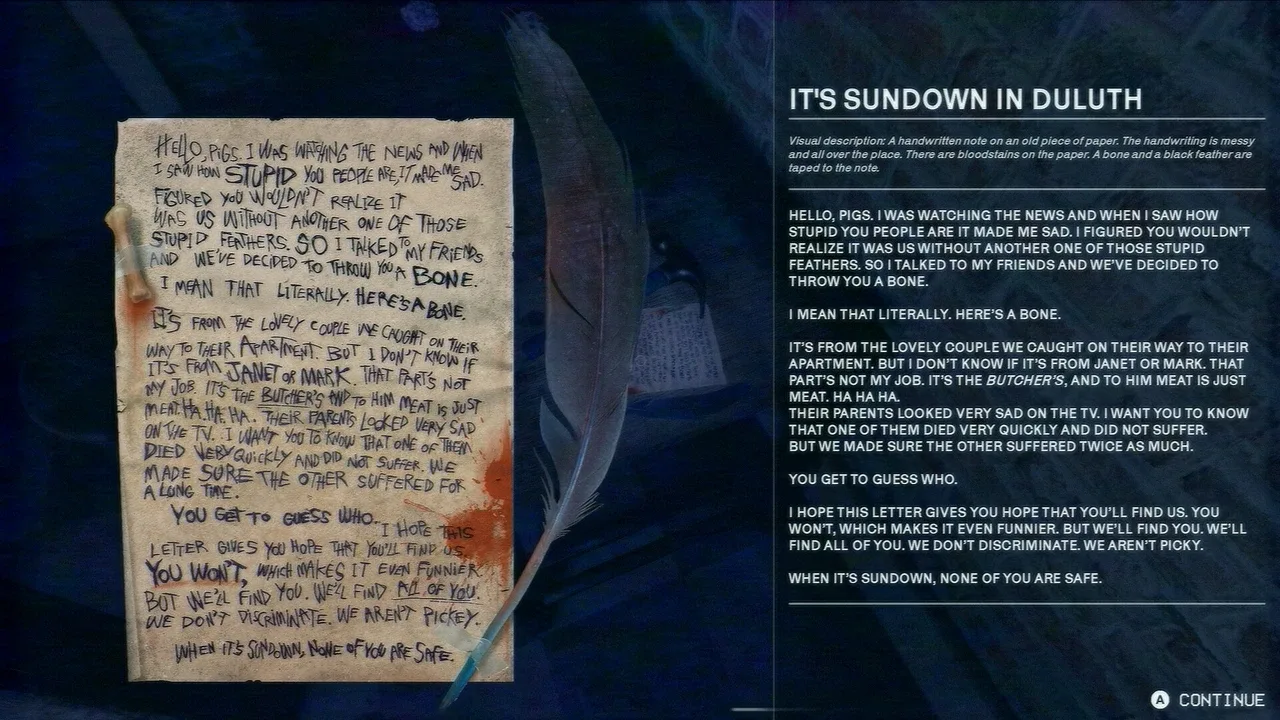 HELLO, PIGS. I WAS WATCHING THE NEWS AND WHEN
I SAW HOW STUPID YOU PEOPLE ARE, IT MADE ME SAD.
FIGURED YOU WOULDN'T REALIZE IT
WAS US WITHOUT ANOTHER ONE OF THOSE
STUPID FEATHERS. SO I TALKED TO MY FRIENDS
AND WE'VE DECIDED TO THROW YOU A BONE.
I MEAN THAT LITERALLY. HERE'S A BONE.
IT'S FROM THE LOVELY COUPLE WE CAUGHT ON THEIR
WAY TO THEIR APARTMENT. BUT I DON'T KNOW IF
IT'S FROM JANET OR MARK. THAT PART'S NOT
MY JOB. IT'S THE BUTCHER'S AND TO HIM MEAT IS JUST
MEAT. HA HA HA. THEIR PARENTS LOOKED VERY SAD
ON THE TV. I WANT YOU TO KNOW THAT ONE OF THEM
DIED VERY QUICKLY AND DID NOT SUFFER. WE
MADE SURE THE OTHER SUFFERED FOR
A LONG TIME.
YOU GET TO GUESS WHO.
I HOPE THIS
LETTER GIVES YOU HOPE THAT YOU'LL FIND US.
YOU WON'T, WHICH MAKES IT EVEN FUNNIER.
BUT WE'LL FIND YOU. WE'LL FIND ALL OF YOU.
WE DON'T DISCRIMINATE. WE AREN'T PICKEY.
WHEN IT'S SUNDOWN, NONE OF YOU ARE SAFE.
IT'S SUNDOWN IN DULUTH
Visual description: A handwritten note on an old piece of paper. The handwriting is messy
and all over the place. There are bloodstains on the paper. A bone and a black feather are
taped to the note.
HELLO, PIGS. I WAS WATCHING THE NEWS AND WHEN I SAW HOW
STUPID YOU PEOPLE ARE IT MADE ME SAD. I FIGURED YOU WOULDN'T
REALIZE IT WAS US WITHOUT ANOTHER ONE OF THOSE STUPID
FEATHERS. SO I TALKED TO MY FRIENDS AND WE'VE DECIDED TO
THROW YOU A BONE.
I MEAN THAT LITERALLY. HERE'S A BONE.
IT'S FROM THE LOVELY COUPLE WE CAUGHT ON THEIR WAY TO THEIR
APARTMENT. BUT I DON'T KNOW IF IT'S FROM JANET OR MARK. THAT
PART'S NOT MY JOB. IT'S THE BUTCHER'S, AND TO HIM MEAT IS JUST
MEAT. HA HA HA.
THEIR PARENTS LOOKED VERY SAD ON THE TV. I WANT YOU TO KNOW
THAT ONE OF THEM DIED VERY QUICKLY AND DID NOT SUFFER.
BUT WE MADE SURE THE OTHER SUFFERED TWICE AS MUCH.
YOU GET TO GUESS WHO.
I HOPE THIS LETTER GIVES YOU HOPE THAT YOU'LL FIND US. YOU
WON'T, WHICH MAKES IT EVEN FUNNIER. BUT WE'LL FIND YOU. WE'LL
FIND ALL OF YOU. WE DON'T DISCRIMINATE. WE AREN'T PICKY.
WHEN IT'S SUNDOWN, NONE OF YOU ARE SAFE.
A CONTINUE